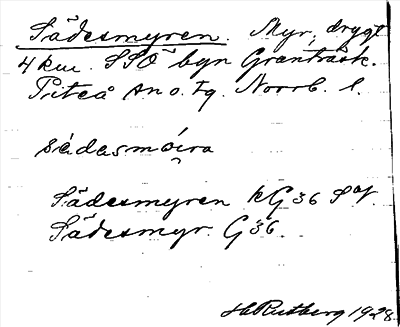 Sädesmyren. Myr, drygt
4 km. SSO byn Granträsk.
Piteå sn o. tg. Norrb. l.
sèdasmóira
Sädesmyren kG36 Saf.
Sädesmyr. G36.
H Rutberg 1928